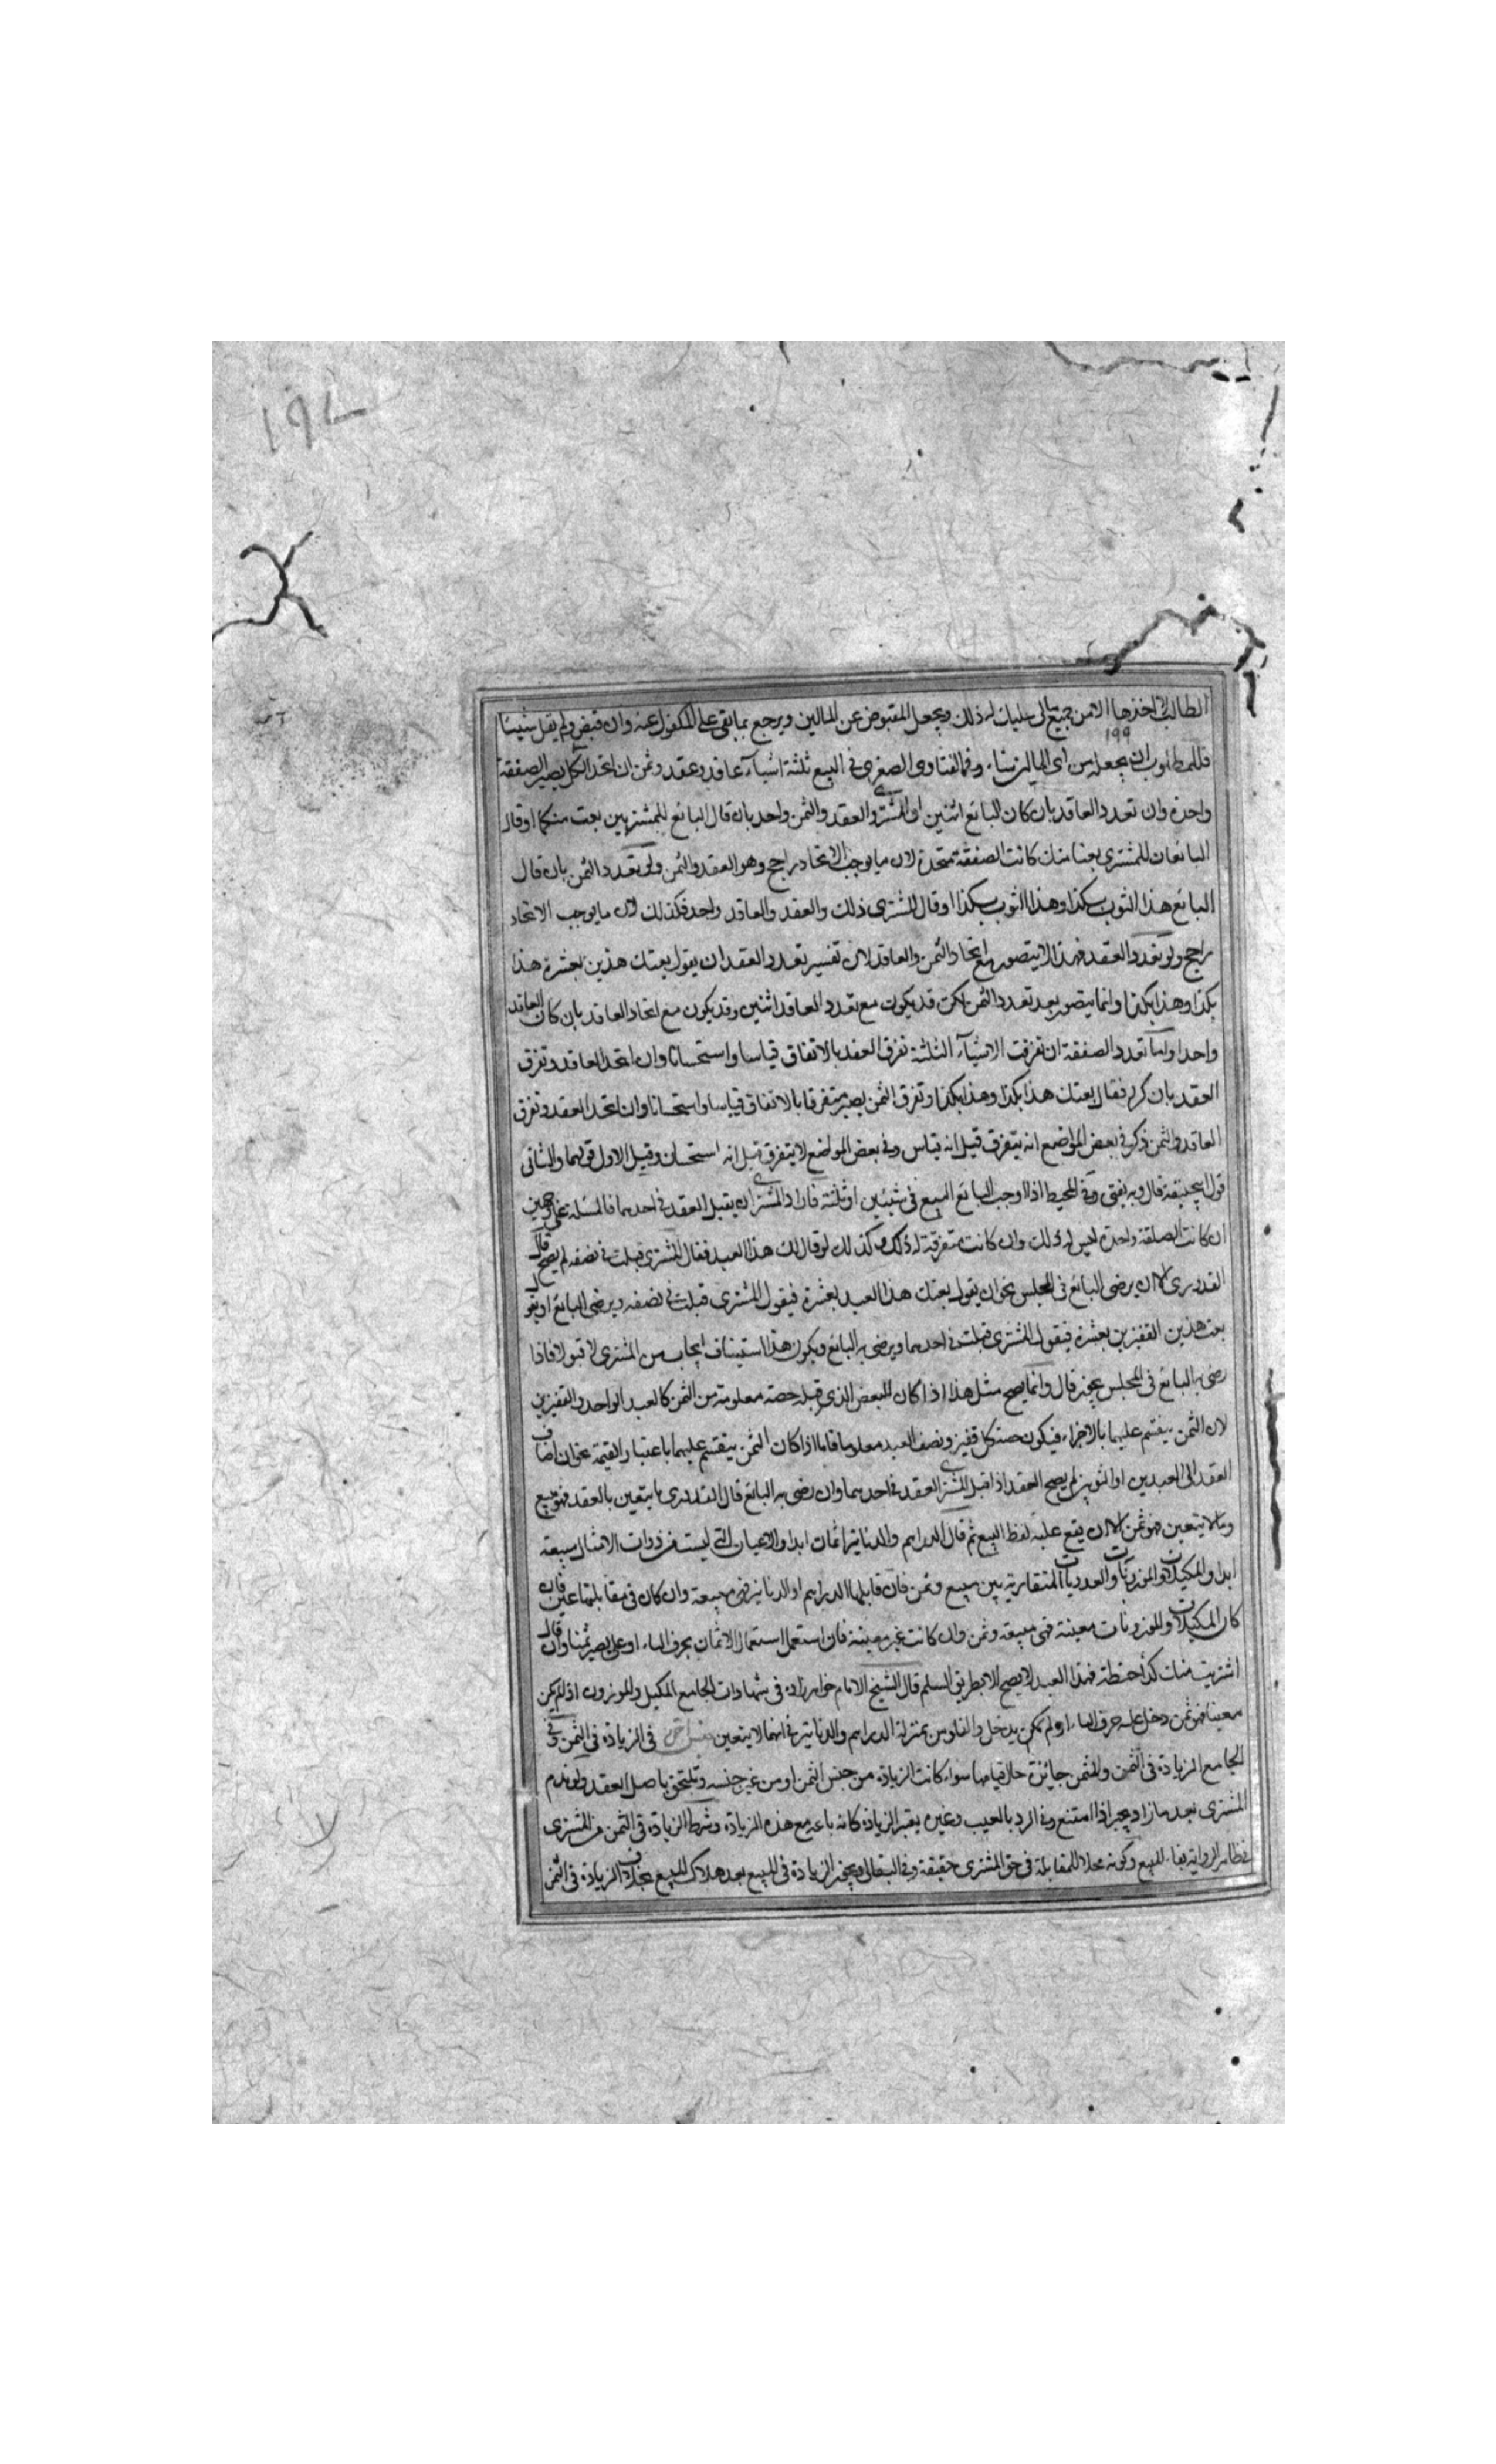 ١٩٧
الطالب انا اخذها الا من جميع مالى عليك له ذلك ويجعل المقبوض عن المالين ويرجع بما بقى على المكفول عنه وان قبض ولم يقل شيئا
١٩٩
فللمطلوب ان يجعله من اى المالين شاء وفى الفتاوى الصغرى فى البيع ثلثة اشيآء عاقد وعقد وثمن ان اتحد الكل يصير الصفقة
واحدة وان تعدد العاقد بان كان البائع اثنين او المشترى والعقد والثمن واحد بان قال البائع للمشتريين بعت منكما او قال
البائعان للمشترى بعنا منك كانت الصفقة متحدة لان ما يوجب الاتحاد راجح وهو العقد والثمن ولو تعدد الثمن بان قال
البائع هذا الثوب بكذا وهذا الثوب بكذا او قال المشترى ذلك والعقد والعاقد واحد فكذلك لان ما يوجب الاتحاد
راجح ولو تعدد العقد فهذا لا يتصور مع اتحاد الثمن والعاقد لان تفسير تعدد العقد ان يقول بعتك هذين بعشرة هذا
بكذا وهذا بكذا وانما يتصور بعد تعدد الثمن لكن قد يكون مع تعدد العاقد اثنين وقد يكون مع اتحاد العاقد بان كان العاقد
واحدا واما تعدد الصفقة ان تفرقت الاشيآء الثلثة تفرق العقد بالاتفاق قياسا واستحسانا وان اتحد العاقد وتفرق
العقد بان كرر فقال بعتك هذا بكذا وهذا بكذا وتفرق الثمن يصير متفرقا بالاتفاق قياسا واستحسانا وان اتحد العقد وتفرق
العاقد والثمن ذكر فى بعض المواضع انه يتفرق قيل انه قياس وفى بعض المواضع لا يتفرق قيل انه استحسان وقيل الاول قولهما والثانى
قول ابيحنيفة قال وبه يفتى وفى المحيط اذا اوجب البائع البيع فى شيئين او ثلثة فاراد المشترى ان يقبل العقد فى احدهما فالمسئلة على وجهين
ان كانت الصفقة واحدة ليس له ذلك وان كانت متفرقة له ذلك وكذلك لو قال لك هذا العبد فقال المشترى قبلت فى نصفه لم يصح قال
القدورى الا ان يرضى البائع فى المجلس نحو ان يقول بعتك هذا العبد بعشرة فيقول المشترى قبلت فى نصفه ويرضى البائع او يقول
بعت هذين القفيزين بعشرة فيقول المشترى قبلت فى احدهما ويرضى به البائع ويكون هذا استيناف ايجاب من المشترى لا قبولا فاذا
رضى به البائع فى المجلس يجوز قال وانما يصح مثل هذا اذا كان للبعض الذى قبله حصة معلومة من الثمن كالعبد الواحد والقفيزين
لان الثمن ينقسم عليهما بالاجزاء فيكون حصة كل قفيز ونصف العبد معلوما فاما اذا كان الثمن ينقسم عليهما باعتبار القيمة نحو ان اضاف
العقد الى العبدين او الثوبين لم يصح العقد اذا قبل المشترى العقد فى احدهما وان رضى به البائع قال القدورى ما يتعين بالعقد فهو مبيع
وما لا يتعين فهو ثمن الا ان يقع عليه لفظ البيع ثم قال الدراهم والدنانير اثمان ابدا والاعيان التى ليست من ذوات الامثال مبيعة
ابدا والمكيلات والموزونات والعدديات المتقاربة بين مبيع وثمن فان قابلها الدراهم او الدنانير فهى مبيعة وان كان فى مقابلتها عين فان
كان المكيلات والموزونات معينة فهى مبيعة وثمن وان كانت غير معينة فان استعمل استعمال الاثمان بحرف الباء او على يصير ثمنا وان قال
اشتريت منك كذا حنطة بهذا العبد لا يصح الا بطريق السلم قال الشيخ الامام خواهرزاده فى شهادات الجامع المكيل والموزون اذا لم يكن
معينا فهو ثمن دخل عليه حرف الباء او لم يكن يدخل والفلوس بمنزلة الدراهم والدنانير فى انها لا يتعين فى الزيادة فى الثمن وفى
الجامع الزيادة فى الثمن والمثمن جائزة حال قيامها سواء كانت الزيادة من جنس الثمن او من غير جنسه وتلتحق باصل العقد ولو ندم
المشترى بعد ما زاد يجبر اذا امتنع وفى الرد بالعيب وغيره يعتبر الزيادة كانه باعه مع هذه الزيادة وشرط الزيادة فى الثمن من المشترى
فى ظاهر الرواية بقاء المبيع وكونه محلا للمقابلة فى حق المشترى حقيقة وفى البقالى ويجوز الزيادة فى المبيع بعد هلاك المبيع بخلاف الزيادة فى الثمن